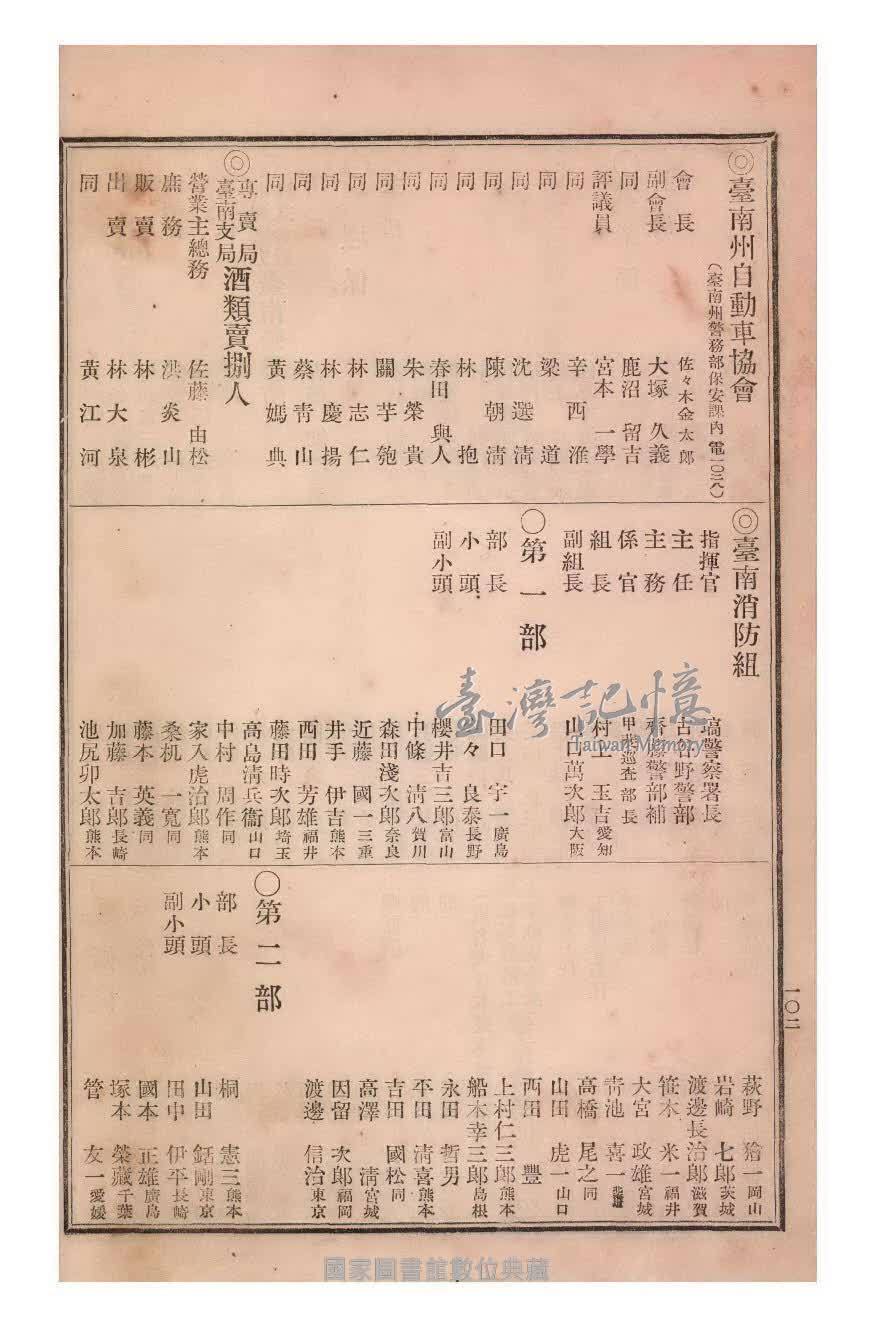 ◎臺南州自動車協會
(臺南州警務部保安課內 電一〇三八)
會長 佐々木金太郎
副會長 大塚久義
同 鹿沼留吉
評議員 宮本一學
同 辛西淮
同 梁道
同 沈選清
同 陳朝清
同 林抱
同 春田與人
同 朱榮貴
同 關芋匏
同 林志仁
同 林慶揚
同 蔡青山
同 黃媽典
◎專賣局臺南支局酒類賣捌人
營業主總務 佐藤由松
庶務 洪炎山
販賣 林彬
出賣 林大泉
同 黃江河
◎臺南消防組
指揮官 塙警察署長
主任 古田野警部
主務 齋藤警部補
係官 甲斐巡查部長
組長 村上玉吉 愛知
副組長 山口萬次郎 大阪
〇第一部
部長 田口宇一 廣島
小頭 々良泰 長野
副小頭 櫻井吉三郎 富山
中條清八 賀川
森田淺次郎 奈良
近藤國一 三重
井手伊吉 熊本
西田芳雄 福井
藤田時次郎 埼玉
高島清兵衞 山口
中村周作 同
家入虎治郎 熊本
桑机一寬 同
藤本英義 同
加藤吉郎 長崎
池尻卯太郎 熊本
萩野猞一 岡山
岩崎七郎 茨城
渡邊長治郎 滋賀
笹木米一 福井
大宮政雄 宮城
青池喜一
高橋尾之 同
山田虎一 山口
西田豐
上村仁三郎 熊本
船木幸三郎 島根
永田哲男
平田清喜 熊本
吉田國松 同
高澤清 宮城
因留次郎 福岡
渡邊信治 東京
〇第二部
部長 桐憲三 熊本
小頭 山田銛剛 東京
副小頭 田中伊平 長崎
國本正雄 廣島
塚本榮藏 千葉
管友一 愛媛
一〇二
臺灣記憶
Taiwan Memory
國家圖書館數位典藏